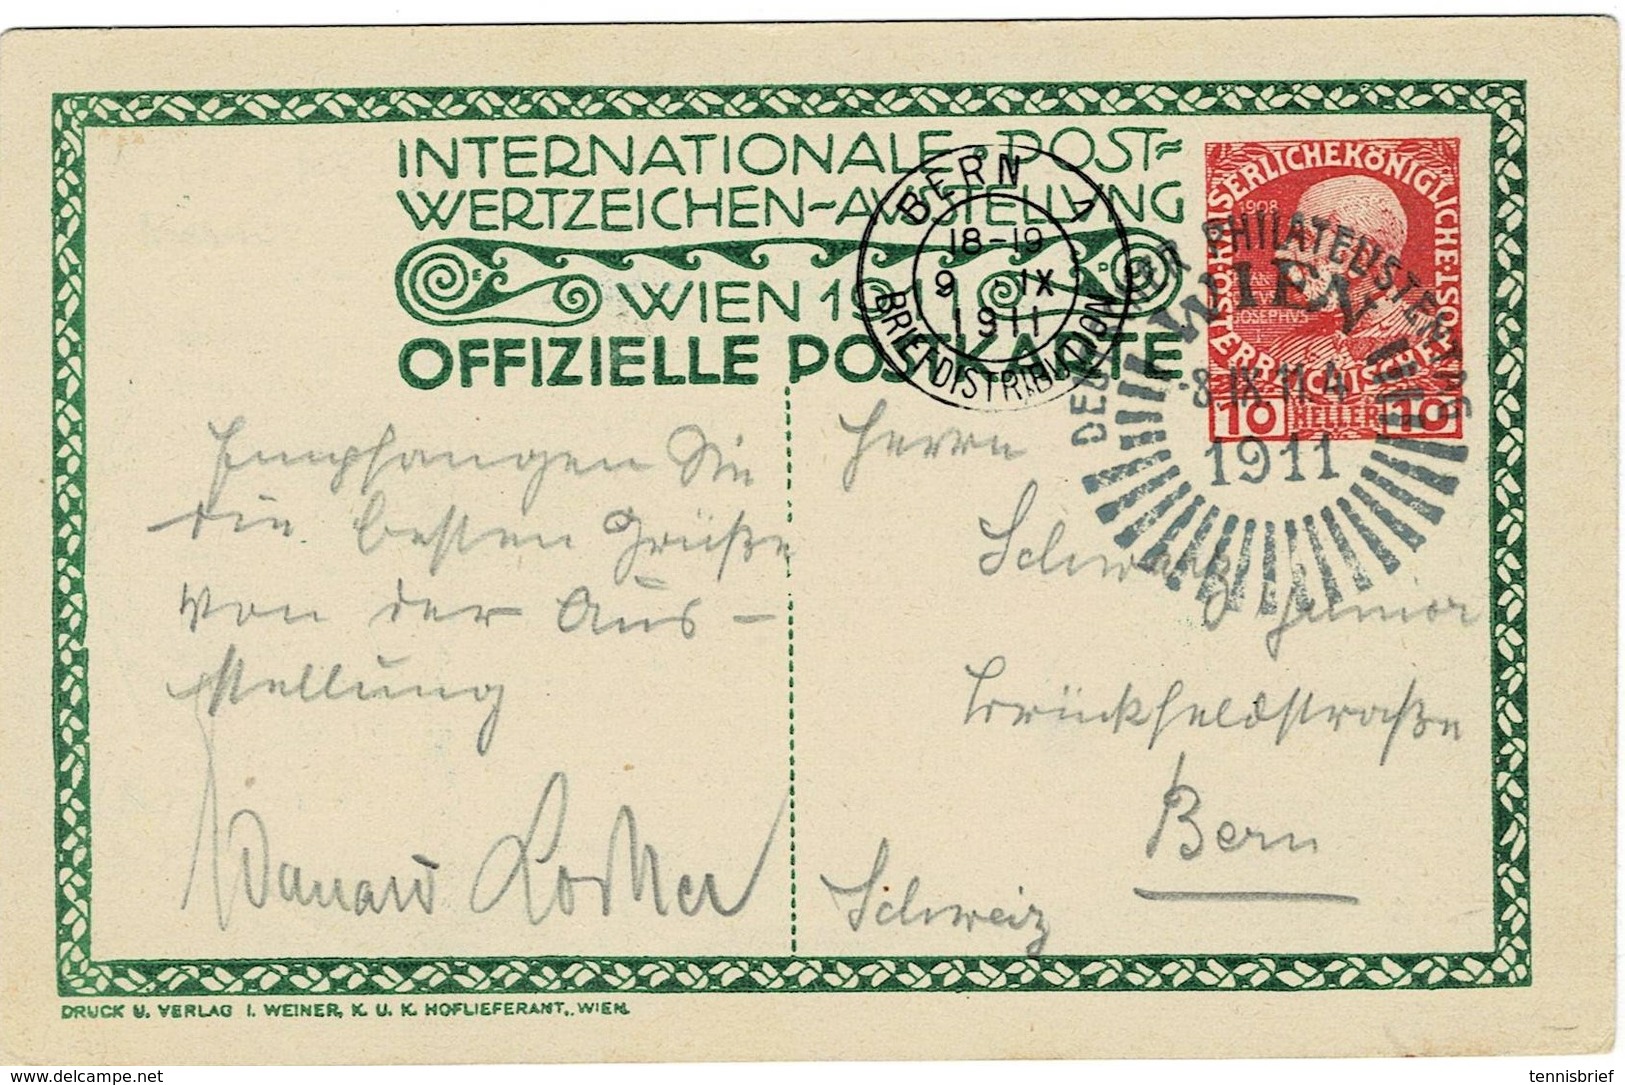 INTERNATIONALE POST=
WERTZEICHEN-AVSSTELLVNG
WIEN 1911
OFFIZIELLE POSTKARTE
BERN
18-19
9 IX
1911
BRIEFDISTRIBUTION
KAISERLICHEKÖNIGLICHE
ÖSTERREICHISCHE POST
1908
JOSEPHVS
10 HELLER 10
DEUTSCHER PHILATELISTENTAG
WIEN
-8.IX.11.4
1911
Empfangen Sie
die besten Grüße
von der Aus-
stellung
Herrn
Schwarz
junior
Brückfeldstraße
Bern
Schweiz
DRUCK U. VERLAG I. WEINER, K. U. K. HOFLIEFERANT, WIEN.
www.delcampe.net
tennisbrief